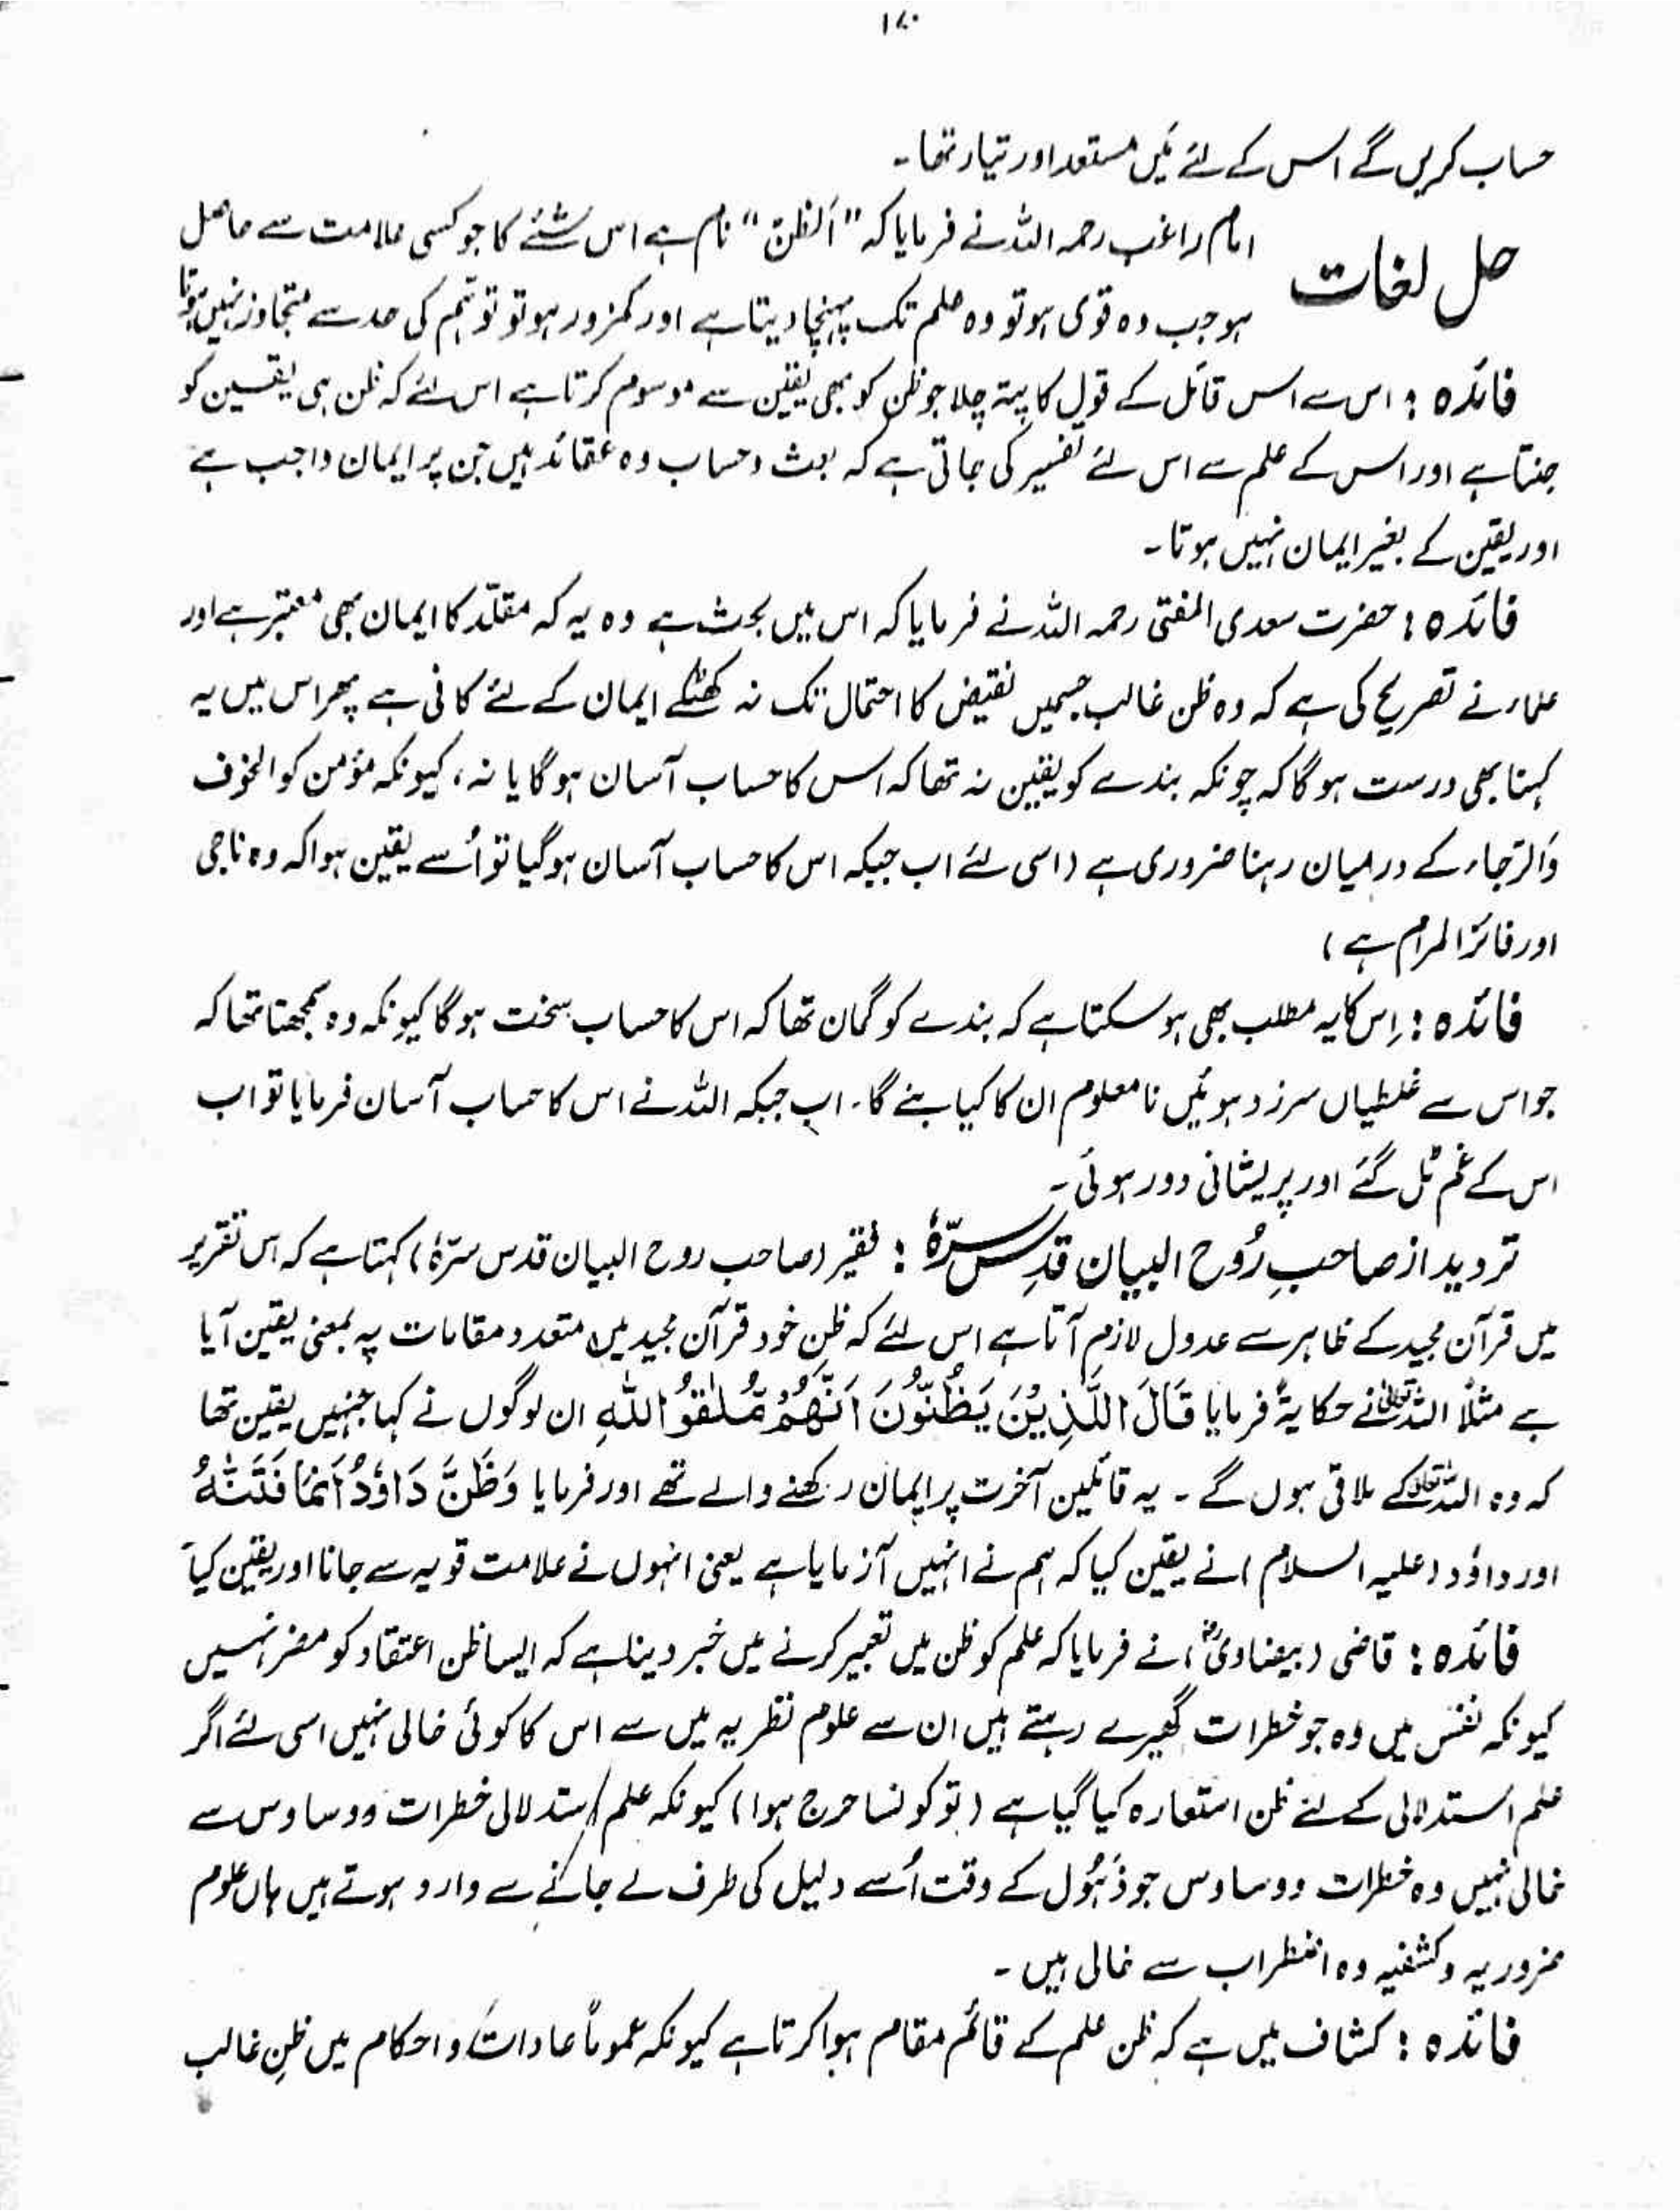 ۱۷۰
حساب کریں گے اس کے لئے میں مستعد اور تیار تھا۔
حل لغات
امام راغب رحمہ اللہ نے فرمایا کہ "اَلظن" نام ہے اس شئے کا جو کسی علامت سے حاصل
ہو جب وہ قوی ہو تو وہ علم تک پہنچا دیتا ہے اور کمزور ہو تو توہم کی حد سے متجاوز نہیں ہوتا
فائدہ : اس سے اس قائل کے قول کا پتہ چلا جو ظن کو بھی یقین سے موسوم کرتا ہے اس لئے کہ ظن ہی یقین کو
جنتا ہے اور اس کے علم سے اس لئے تفسیر کی جاتی ہے کہ بعث و حساب وہ عقائد ہیں جن پر ایمان واجب ہے
اور یقین کے بغیر ایمان نہیں ہوتا۔
فائدہ : حضرت سعدی المفتی رحمہ اللہ نے فرمایا کہ اس میں بحث ہے وہ یہ کہ مقلّد کا ایمان بھی معتبر ہے اور
علماء نے تصریح کی ہے کہ وہ ظن غالب جسمیں نقیض کا احتمال تک نہ کھٹکے ایمان کے لئے کافی ہے پھر اس میں یہ
کہنا بھی درست ہو گا کہ چونکہ بندے کو یقین نہ تھا کہ اس کا حساب آسان ہو گا یا نہ ، کیونکہ مؤمن کو الخوف
وَالرّجاء کے درمیان رہنا ضروری ہے (اسی لئے اب جبکہ اس کا حساب آسان ہوگیا تو اُسے یقین ہوا کہ وہ ناجی
اور فائز المرام ہے)
فائدہ : اِس کا یہ مطلب بھی ہو سکتا ہے کہ بندے کو گمان تھا کہ اس کا حساب سخت ہو گا کیونکہ وہ سمجھتا تھا کہ
جو اس سے غلطیاں سرزد ہوئیں نا معلوم ان کا کیا بنے گا۔ اب جبکہ اللہ نے اس کا حساب آسان فرمایا تو اب
اس کے غم ٹل گئے اور پریشانی دور ہوئی۔
تردید از صاحبِ رُوح البیان قدِس سرّہٗ : فقیر (صاحب روح البیان قدس سرّہٗ) کہتا ہے کہ اس تقریر
میں قرآن مجید کے ظاہر سے عدول لازم آتا ہے اس لئے کہ ظن خود قرآن مجید میں متعدد مقامات پہ بمعنی یقین آیا
ہے مثلاً اللہ تعالیٰ نے حکایۃً فرمایا قَالَ الَّذِیْنَ یَظُنُّوْنَ اَنَّهُمْ مُّلٰقُوا اللّٰهِ ان لوگوں نے کہا جنہیں یقین تھا
کہ وہ اللہ تعالیٰ کے ملاقی ہوں گے ۔ یہ قائلین آخرت پر ایمان رکھنے والے تھے اور فرمایا وَظَنَّ دَاوٗدُ اَنَّمَا فَتَنّٰهُ
اور داؤد (علیہ السلام) نے یقین کیا کہ ہم نے انہیں آزمایا ہے یعنی انہوں نے علامت قویہ سے جانا اور یقین کیا
فائدہ : قاضی (بیضاویؒ) نے فرمایا کہ علم کو ظن میں تعبیر کرنے میں خبر دینا ہے کہ ایسا ظن اعتقاد کو مضر نہیں
کیونکہ نفس میں وہ جو خطرات گھیرے رہتے ہیں ان سے علوم نظریہ میں سے اس کا کوئی خالی نہیں اسی لئے اگر
علم استدلالی کے لئے ظن استعارہ کیا گیا ہے (تو کونسا حرج ہوا) کیونکہ علم استدلالی خطرات و وساوس سے
خالی نہیں وہ خطرات و وساوس جو ذَہُول کے وقت اُسے دلیل کی طرف لے جانے سے وارد ہوتے ہیں ہاں علوم
ضروریہ و کشفیہ وہ اضطراب سے خالی ہیں ۔
فائدہ : کشاف میں ہے کہ ظن علم کے قائم مقام ہوا کرتا ہے کیونکہ عموماً عادات و احکام میں ظنِ غالب